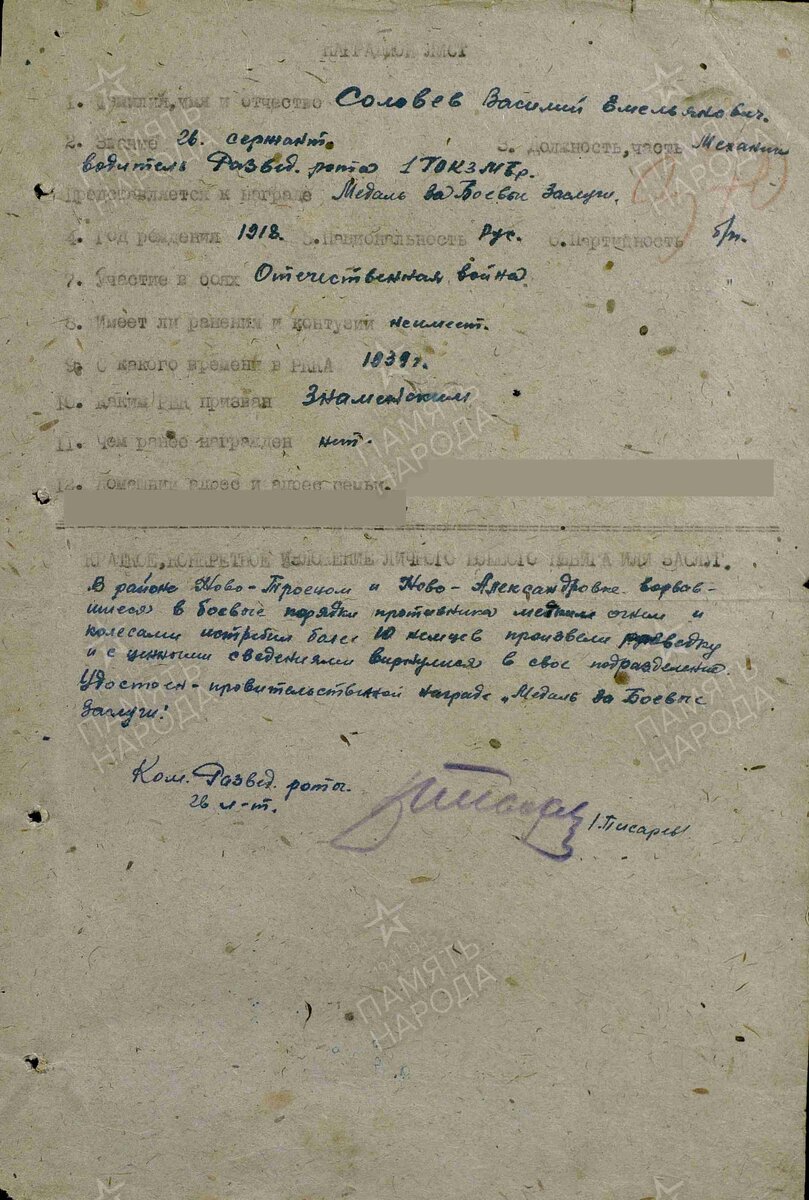 НАГРАДНОЙ ЛИСТ
1. Фамилия, имя и отчество Соловев Василий Емельянович.
2. Звание гв. сержант. 3. Должность, часть Механик
водитель Развед. рота 1 ГОКЗМБр.
Представляется к награде Медаль за Боевые Заслуги.
4. Год рождения 1918. 5. Национальность Рус. 6. Партийность б/п.
7. Участие в боях Отечественная война
8. Имеет ли ранения и контузии неимеет.
9. С какого времени в РККА 1939 г.
10. Каким РВК призван Знаменским
11. Чем ранее награжден нет.
12. Домашний адрес и адрес семьи.
КРАТКОЕ, КОНКРЕТНОЕ ИЗЛОЖЕНИЕ ЛИЧНОГО БОЕВОГО ПОДВИГА ИЛИ ЗАСЛУГ.
В районе Ново-Троецком и Ново-Александровке ворвав-
шиеся в боевые порядки противника метким огнем и
колесами истребил более 10 немцев произвели разведку
и с ценными сведениями вирнулися в свое подразделение.
Удостоен - провительственной награде „Медаль за Боевые
Заслуги!
Ком. Развед. роты.
гв л-т.
/Писарев/
ПАМЯТЬ НАРОДА